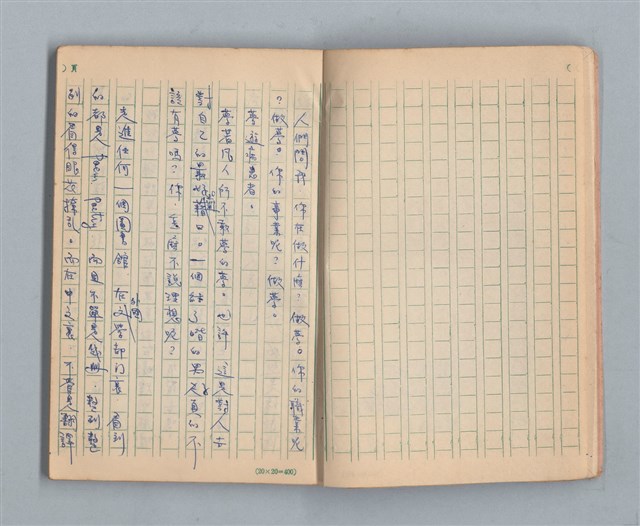 人們問我 你在做什麼？做夢。你的職業呢
？做夢。你的事業呢？做夢。
夢遊病患者。
夢著凡人所不敢夢的夢。也許 這是對人生
對自己的最好藉口。一個結了婚的男人真的不
該有夢嗎？你，怎麼不說理想呢？
走進任何一個圖書館 在外國文學部門裏 看到
的都是 而且不單是幾冊，整列整
列的 眼花撩亂。而在中文裏 不會是翻譯
（20×20=400）